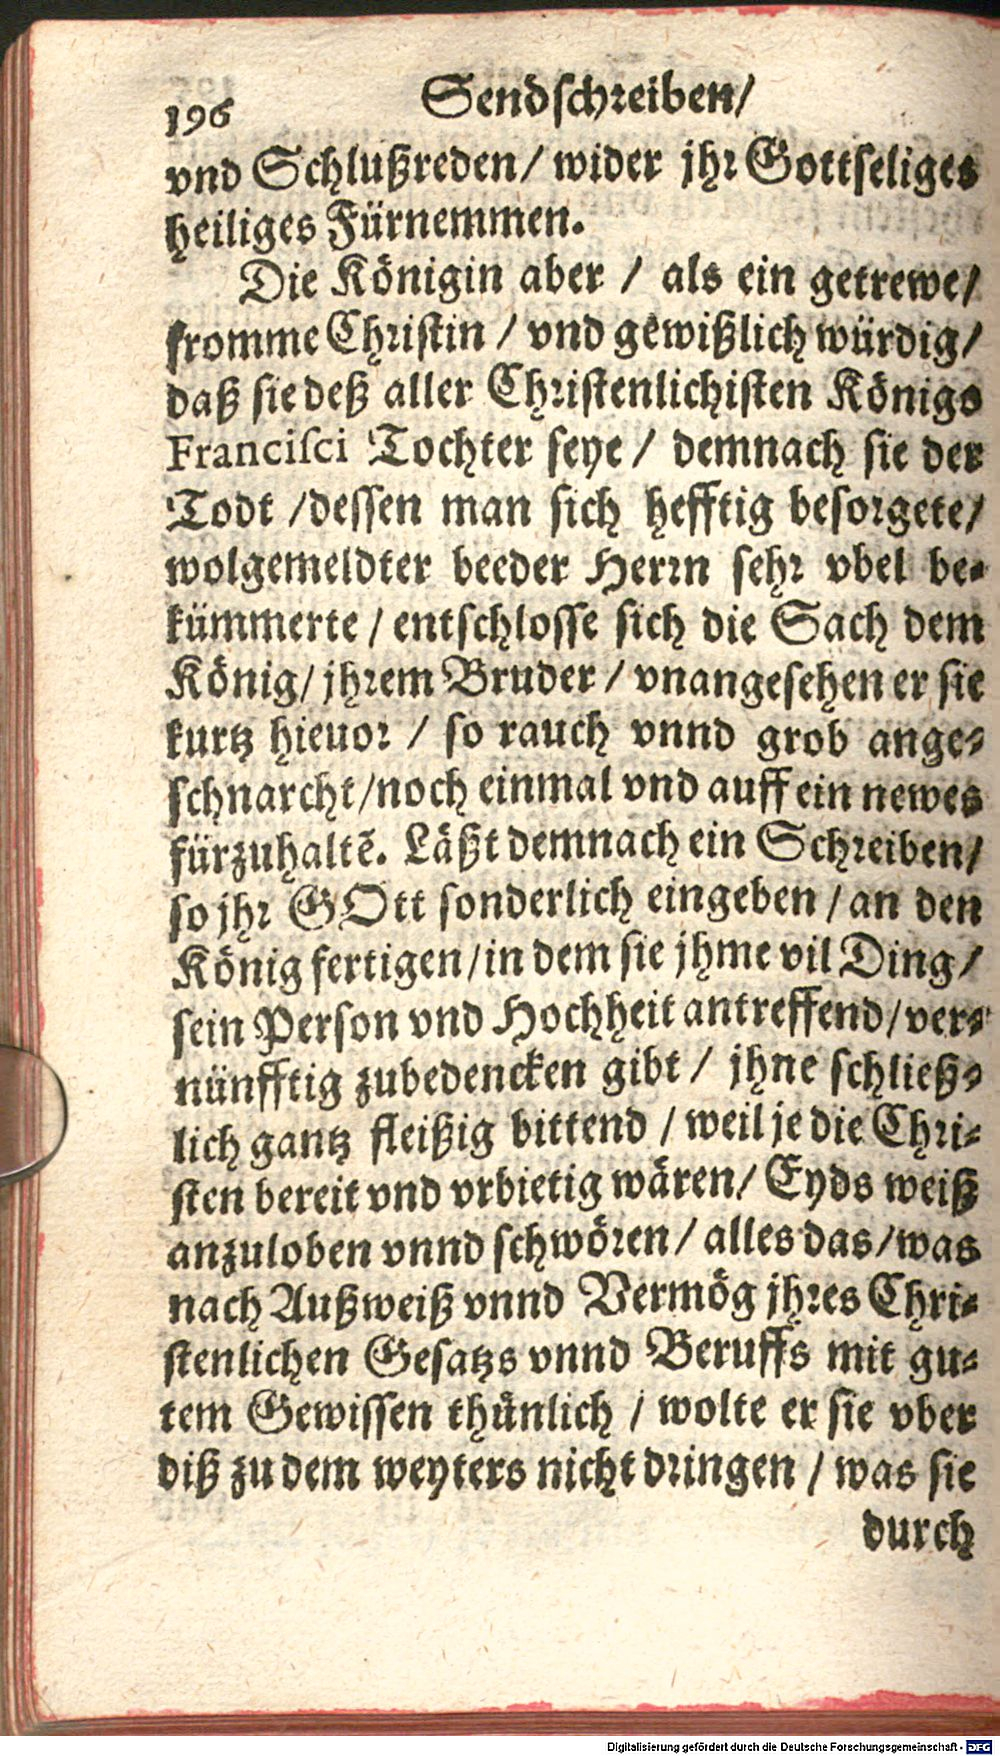 196 Sendschreiben/
vnd Schlußreden/ wider jhr Gottseliges
heiliges Fürnemmen.
Die Königin aber / als ein getrewe/
fromme Christin / vnd gewißlich würdig/
daß sie deß aller Christenlichisten Königs
Francisci Tochter seye / demnach sie der
Todt /dessen man sich hefftig besorgete/
wolgemeldter beeder Herrn sehr vbel be-
kümmerte / entschlosse sich die Sach dem
König/ jhrem Bruder / vnangesehen er sie
kurtz hieuor / so rauch vnnd grob ange-
schnarcht/noch einmal vnd auff ein newes
fürzuhaltẽ. Läßt demnach ein Schreiben/
so jhr GOtt sonderlich eingeben / an den
König fertigen/in dem sie jhme vil Ding/
sein Person vnd Hochheit antreffend/ver-
nünfftig zubedencken gibt / jhne schließ-
lich gantz fleißig bittend / weil je die Chri-
sten bereit vnd vrbietig wären/ Eyds weiß
anzuloben vnnd schwören/ alles das/was
nach Außweiß vnnd Vermög jhres Chri-
stenlichen Gesatzs vnnd Beruffs mit gu-
tem Gewissen thünlich / wolte er sie vber
diß zu dem weyters nicht dringen / was sie
durch
Digitalisierung gefördert durch die Deutsche Forschungsgemeinschaft - DFG